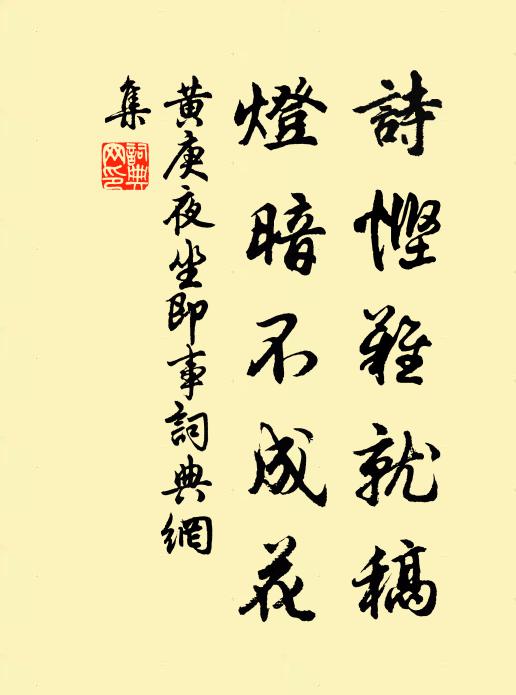 詩慳難就稿
燈暗不成花
黃庚夜坐即事詞典網
集
詞典網印